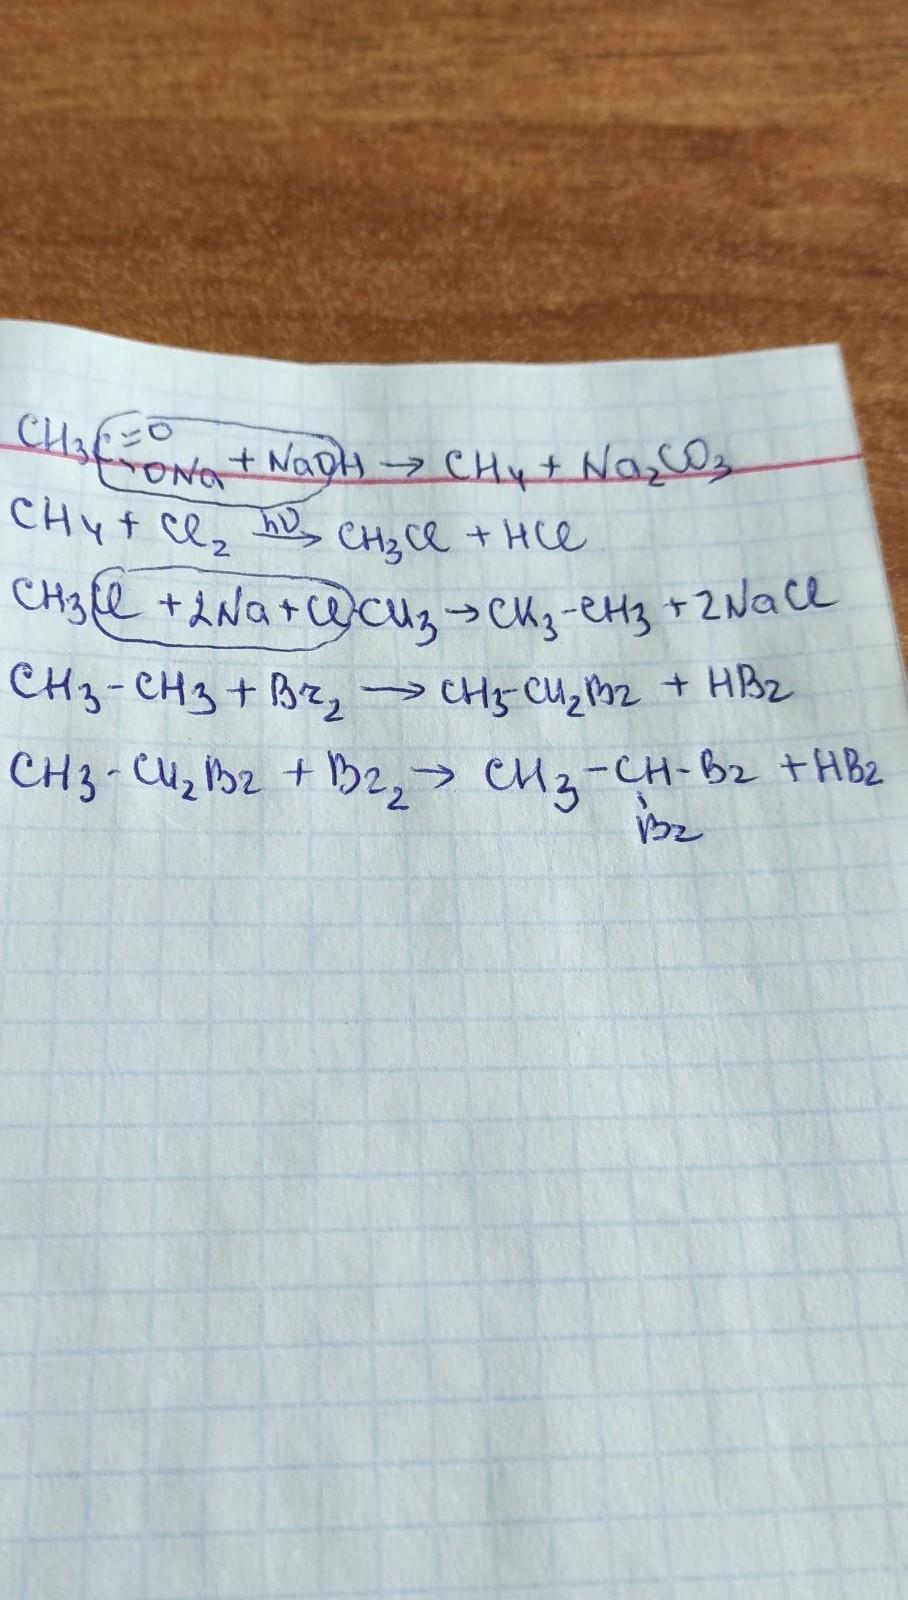 CH3C=O ONa + NaOH → CH4 + Na2CO3
CH4 + Cl2 hν→ CH3Cl + HCl
CH3Cl + 2Na + Cl-CH3 → CH3-CH3 + 2NaCl
CH3-CH3 + Br2 → CH3-CH2Br + HBr
CH3-CH2Br + Br2 → CH3-CH-Br + HBr
Br